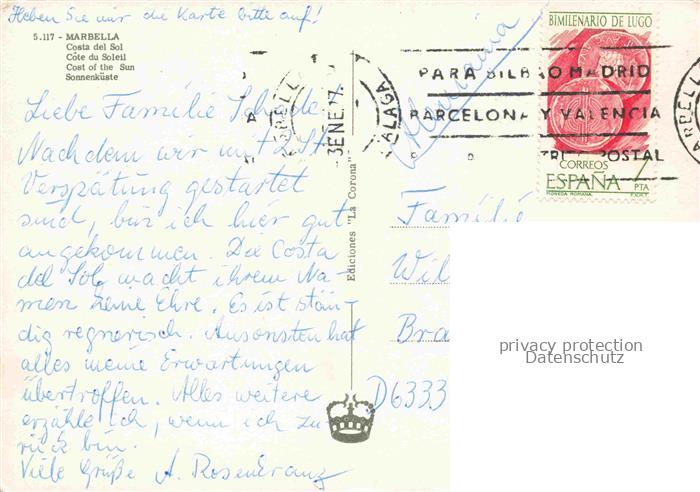 Heben Sie mir die Karte bitte auf!
5.117 - MARBELLA
Costa del Sol
Côte du Soleil
Cost of the Sun
Sonnenküste
Liebe Familie
Nachdem wir mit 2 St.
Verspätung gestartet
sind, bin ich hier gut
angekommen. Die Costa
del Sol macht ihrem Na-
men keine Ehre. Es ist stän-
dig regnerisch. Ansonsten hat
alles meine Erwartungen
übertroffen. Alles weitere
erzähle ich, wenn ich zu
rück bin.
Viele Grüße A. Rosenkranz
Ediciones "La Corona"
MARBELLA
3 ENE. 77
MALAGA
PARA BILBAO MADRID
BARCELONA Y VALENCIA
POSTAL
BIMILENARIO DE LUGO
CORREOS
ESPAÑA 7
PTA
MONEDA ROMANA F.N.M.T.
Alemania
Familie
Wil
Bra
D6333
privacy protection
Datenschutz